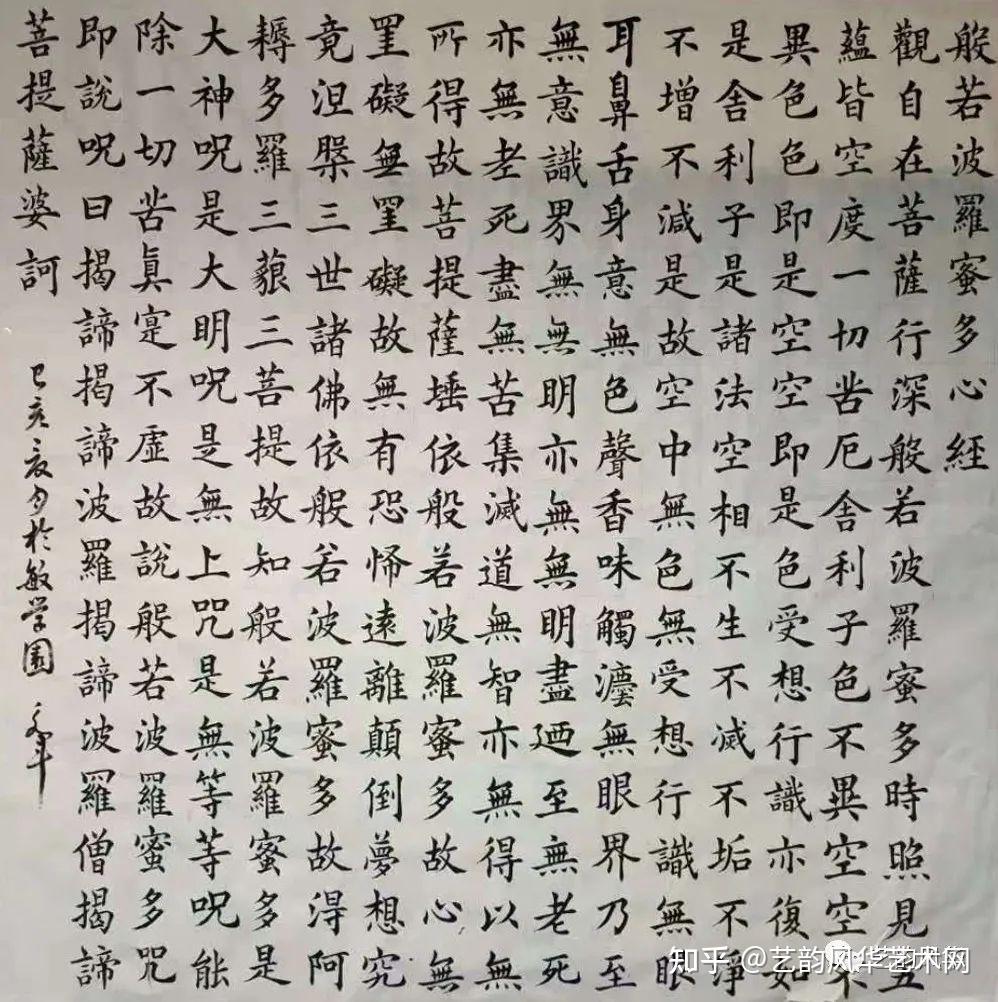 般若波羅蜜多心經
觀自在菩薩行深般若波羅蜜多時照見五
蘊皆空度一切苦厄舍利子色不異空空不
異色色即是空空即是色受想行識亦復如
是舍利子是諸法空相不生不滅不垢不淨
不增不減是故空中無色無受想行識無眼
耳鼻舌身意無色聲香味觸灋無眼界乃至
無意識界無無明亦無無明盡廼至無老死
亦無老死盡無苦集滅道無智亦無得以無
所得故菩提薩埵依般若波羅蜜多故心無
罣礙無罣礙故無有恐怖遠離顛倒夢想究
竟涅槃三世諸佛依般若波羅蜜多故得阿
耨多羅三藐三菩提故知般若波羅蜜多是
大神呪是大明呪是無上咒是無等等呪能
除一切苦眞寔不虛故說般若波羅蜜多咒
即說呪曰揭諦揭諦波羅揭諦波羅僧揭諦
菩提薩婆訶
己亥於敏学園
知乎 @艺韵风华艺术网